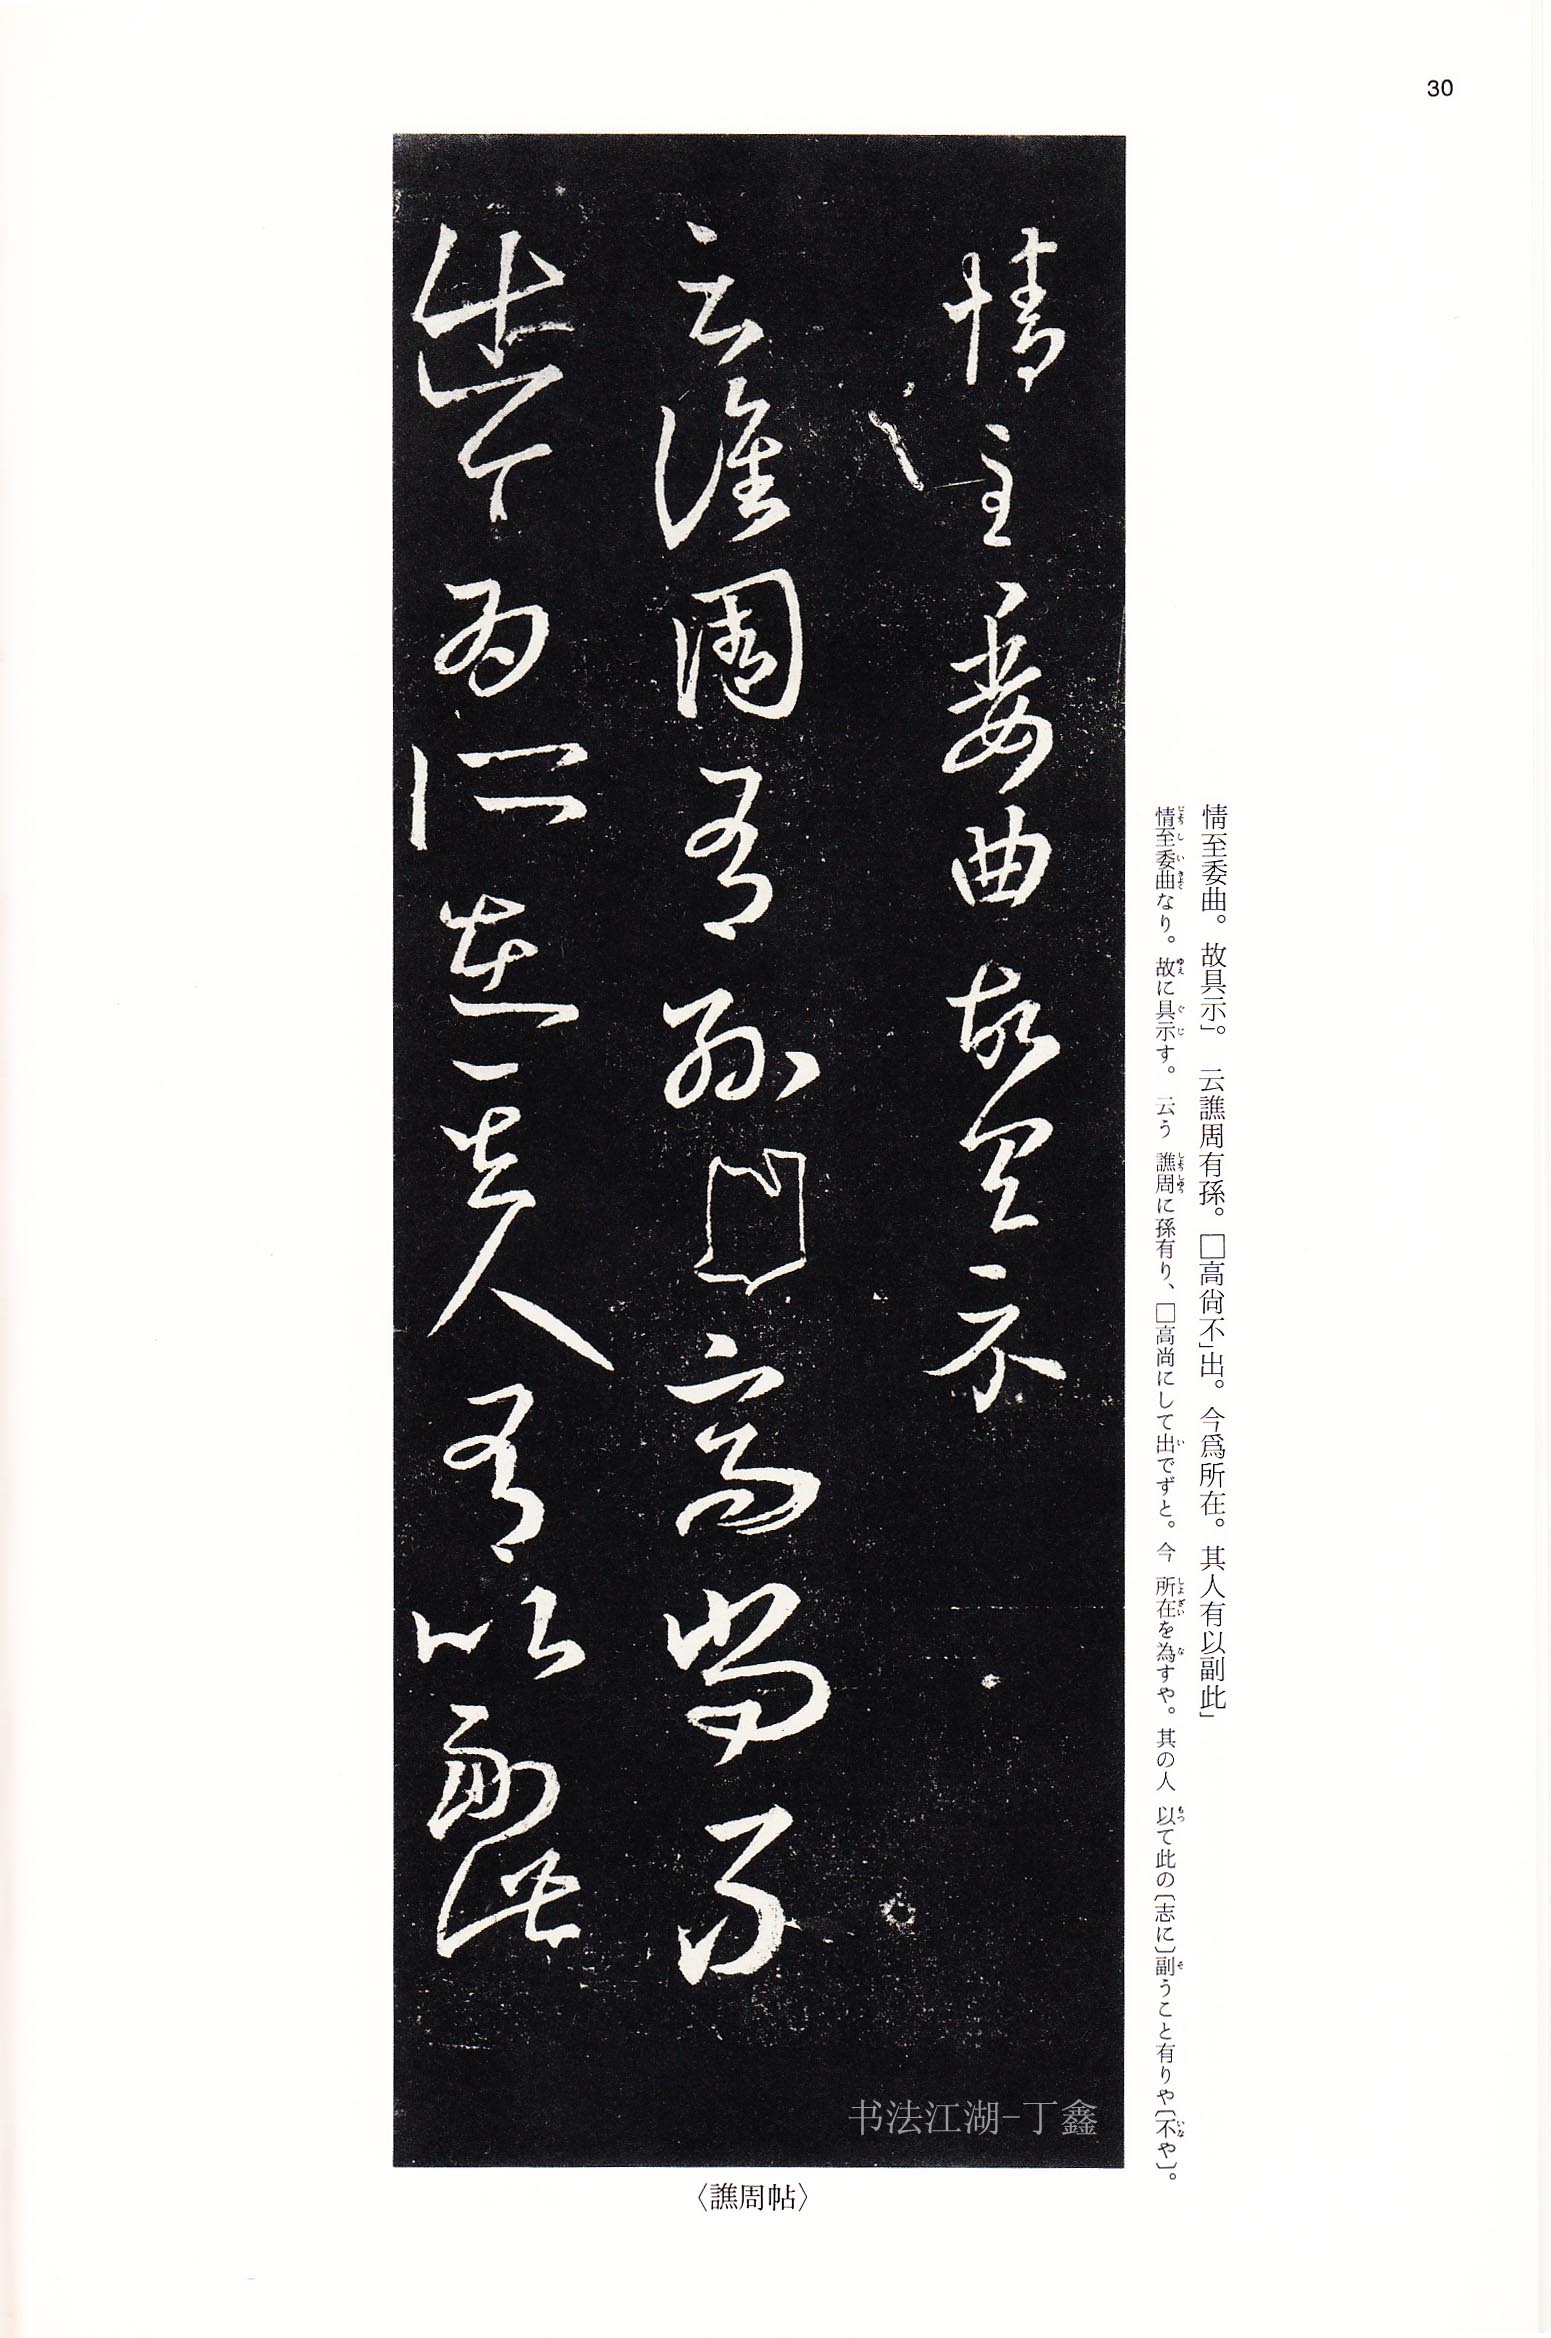 30
情至委曲。故具示」。云譙周有孫。□高尚不」出。今爲所在。其人有以副此」
情至委曲なり。故に具示す。云う 譙周に孫有り、□高尚にして出でずと。今 所在を為すや。其の人 以て此の〔志に〕副うこと有りや〔不や〕。
情至委曲故具示
云譙周有孫 高尚不
出今為所在其人有以副此
书法江湖-丁鑫
〈譙周帖〉